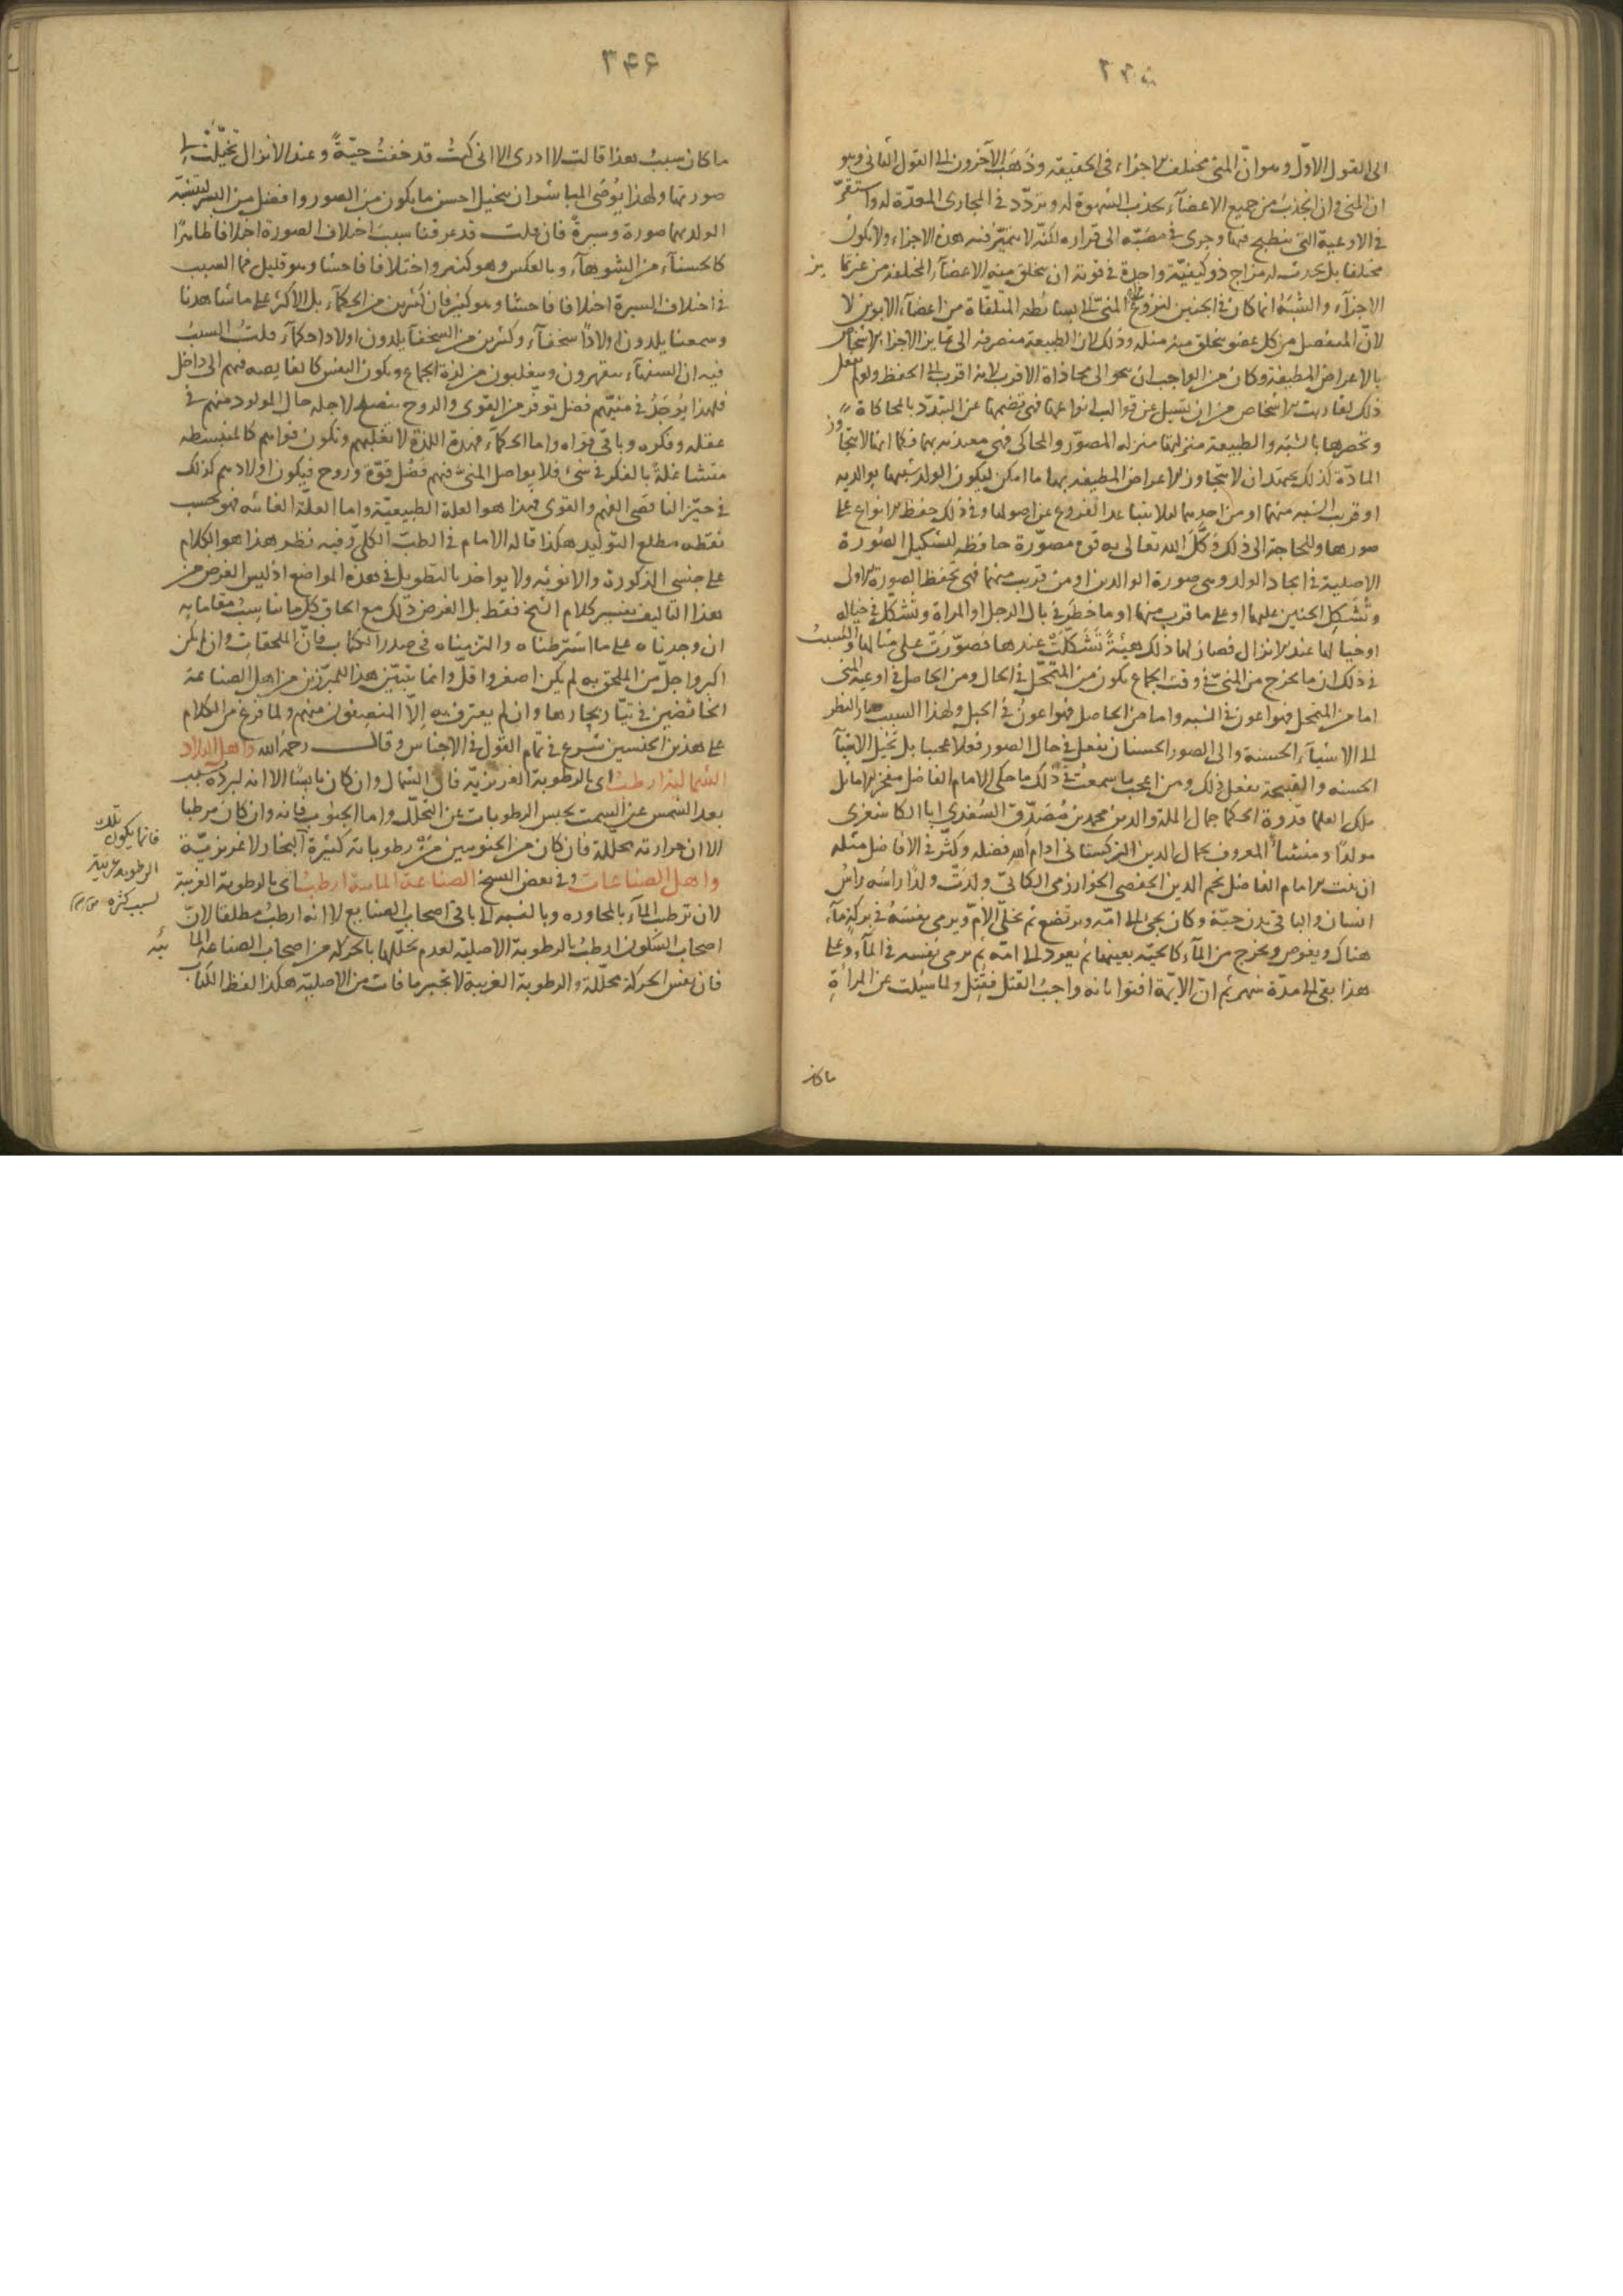 الى القول الاوّل وهو انّ المنى مختلف الاجزاء فى الحقيقة وذهب الآخرون الى القول الثانى وهو
ان المنى وان انجذب من جميع الاعضآء بجذب الشهوة له وتردّد فى المجارى المعدّة له واستقرّ
فى الاوعية التى ينطبخ فيها وجرى فى مصبّه الى قراره لكنّه لا يتميّز فيه هذه الاجزاء ولا يكون
مختلفا بل يحدث له مزاج ذو كيفيّة واحدة فى قوته ان يخلق منه الاعضآء المختلفة من غير تمايز
الاجزآء والشبه انما كان فى الجنين لنزوع المنىّ الى البسائط المتلقاة من اعضآء الابوين لا
لانّ المنفصل من كل عضو يخلق منه مثله وذلك لان الطبيعة منصرفة الى تمايز الاجزاء الاشخاص
بالاعراض المطيفة وكان من الواجب ان ينحو الى محاذاة الاقرب لانه اقرب الى الحفظ ولو لم يفعل
ذلك لقاربت الاشخاص من ان تسيل عن قوالب انواعها فهى تضمها عن التبدّد بالمحاكاة
وتحصرها بالشبه والطبيعة منزلتها منزلة المصوّر والمحاكى فهى معيدة بهما فكما انها لا تتجاوز
المادّة كذلك يجتهد ان لا يتجاوز الاعراض المطيفة بها ما امكن ليكون الولد شبيها بوالديه
او قريب الشبه منهما او من احدهما لئلا يتباعد الفروع عن اصولها وفى ذلك حفظ الانواع على
صورها وللحاجة الى ذلك وكّل الله تعالى به قوة مصوّرة حافظة لتشكيل الصورة
الاصلية فى ايجاد الولد وهى صورة الوالدين او من قريب منهما فهى تحفظ الصورة الاولى
وتشكل الجنين عليها او على ما قرب منها او ما خطر فى بال الرجل او المرأة وتشكّل فى خياله
او خيالها عند الانزال فصار لها ذلك هيئة تشكّلت عندها فصوّرت على مثالها والسبب
فى ذلك ان ما يخرج من المنىّ فى وقت الجماع يكون من المتحلّل فى الحال ومن الحاصل فى اوعية المنى
اما من المتحلل فهو اعون فى الشبه واما من الحاصل فهو اعون فى الحبل ولهذا السبب صار النظر
الى الاشيآء الحسنة والى الصور الحسنان يفعل فى حال الصور فعلا عجيبا بل تخيل الاشيآ
الحسنة والقبيحة يفعل ذلك ومن اعجب ما سمعت فى ذلك ما حكى الامام الفاضل مفخر الاماثل
ملك العلما قدوة الحكما جمال الملة والدين محمد بن مصدّق السغدى ابا الكاشغرى
مولدًا ومنشأ المعروف بجمال الدين التركستانى ادام الله فضله وكثّر فى الافاضل مثله
ان بنت الامام الفاضل نجم الدين الحفصى الخوارزمى الكاتى ولدت ولدًا راسه راس
انسان والباقى بدن حيّة وكان يجى الى امّه ويرتضع ثم يخلّى الامّ ويرمى بنفسه فى بركة مآء
هناك ويغوص ويخرج من المآء كالحيّة بعينها ثم يعود الى امّه ثم يرمى نفسه فى المآء وعلى
هذا بقى الى مدّة شهر ثم انّ الائمة افتوا بانه واجب القتل فقتل ولما سئلت عن المرأة
ماكان
۳۴۶
ما كان سبب هذا قالت لا ادرى الا انى كنت قد خفت حيّة وعند الانزال تخيّلت لى
صورتها ولهذا يوصى المباشر ان يتخيل احسن ما يكون من الصور وافضل من البشر ليتشبّه
الولد بهما صورة وسيرة فان قلت قد عرفنا سبب اختلاف الصورة اختلافا ظاهرًا
كالحسنآء من الشوهآء وبالعكس وهو كثير واختلافا فاحشا وهو قليل فما السبب
فى اختلاف السيرة اختلافا فاحشا وهو كثير فان كثيرين من الحكمآء بل الاكثر على ما شاهدنا
وسمعنا يلدون اولادًا سخفآء وكثيرين من السخفآ يلدون اولادا حكمآء قلت السبب
فيه ان السفهآء يتقهرون ويغلبون من لذة الجماع ويكون النفس كالغايصه فيهم الى داخل
فلهذا يوجد فى منيّهم فضل توفّر من القوى والروح ينصلح لاجله حال المولود منهم فى
عقله وفكره وباقى قواه واما الحكمآء فهذه اللذة لا تغلبهم وتكون قواهم كالمنبسطه
متشاغلة بالفكر فى شئ فلا يواصل المنىّ فيهم فضل قوّة وروح فيكون اولادهم كذلك
فى حيّز الناقصى الفهم والقوى فهذا هو العلة الطبيعيّة واما العلّة الغائيه فهو بحسب
نقطه مطلع التوليد هكذا قاله الامام فى الطب الكلى وفيه نظر هذا هو الكلام
على جنسى الذكورة والانوثه ولا يواخذ بالتطويل فى هذه المواضع اذ ليس الغرض من
هذا التاليف تفسير كلام الشيخ فقط بل الغرض ذلك مع الحاق كل ما يناسب مقاماته
ان وجدناه على ما اشترطناه والتزمناه فى صدر الكتاب فانّ الملحقات وان لم تكن
اكبر واجلّ من الملحق به لم يكن اصغر واقلّ وانما يتبيّن هذا للمبرّزين من اهل الصناعة
الخائضين فى تيّار بحارها وان لم يعترف به الّا المنصفون منهم ولما فرغ من الكلام
على هذين الجنسين شرع فى تمام القول فى الاجناس وقال رحمه الله واهل البلاد
الشمالية ارطب اى بالرطوبة الغريزيّة فان الشمال وان كان يابسًا الا انه لبرده بسبب
بعد الشمس عن السمت يحبس الرطوبات عن التحلّل واما الجنوب فانه وان كان مرطبا
الا ان حرارته محللة فان كان من الجنوبيين من رطوباته كثيرة البخار لا غريزيّة
واهل الصناعات وفى بعض النسخ الصناعة المائية ارطب اى بالرطوبة الغريبة
لان ترطيب المآء بالمجاوره وبالنسبه الى باقى اصحاب الصنايع لا انه ارطب مطلقا لانّ
اصحاب السكون ارطب بالرطوبة الاصلية لعدم تحلّلها بالحركة من اصحاب الصناعة المائيه
فان نفس الحركة محلّلة والرطوبة الغريبة لا تجبر ما فات من الاصليّة هكذا لفظ الكتاب
فانما يكون تلك
الرطوبة غريبة
لسبب كثره